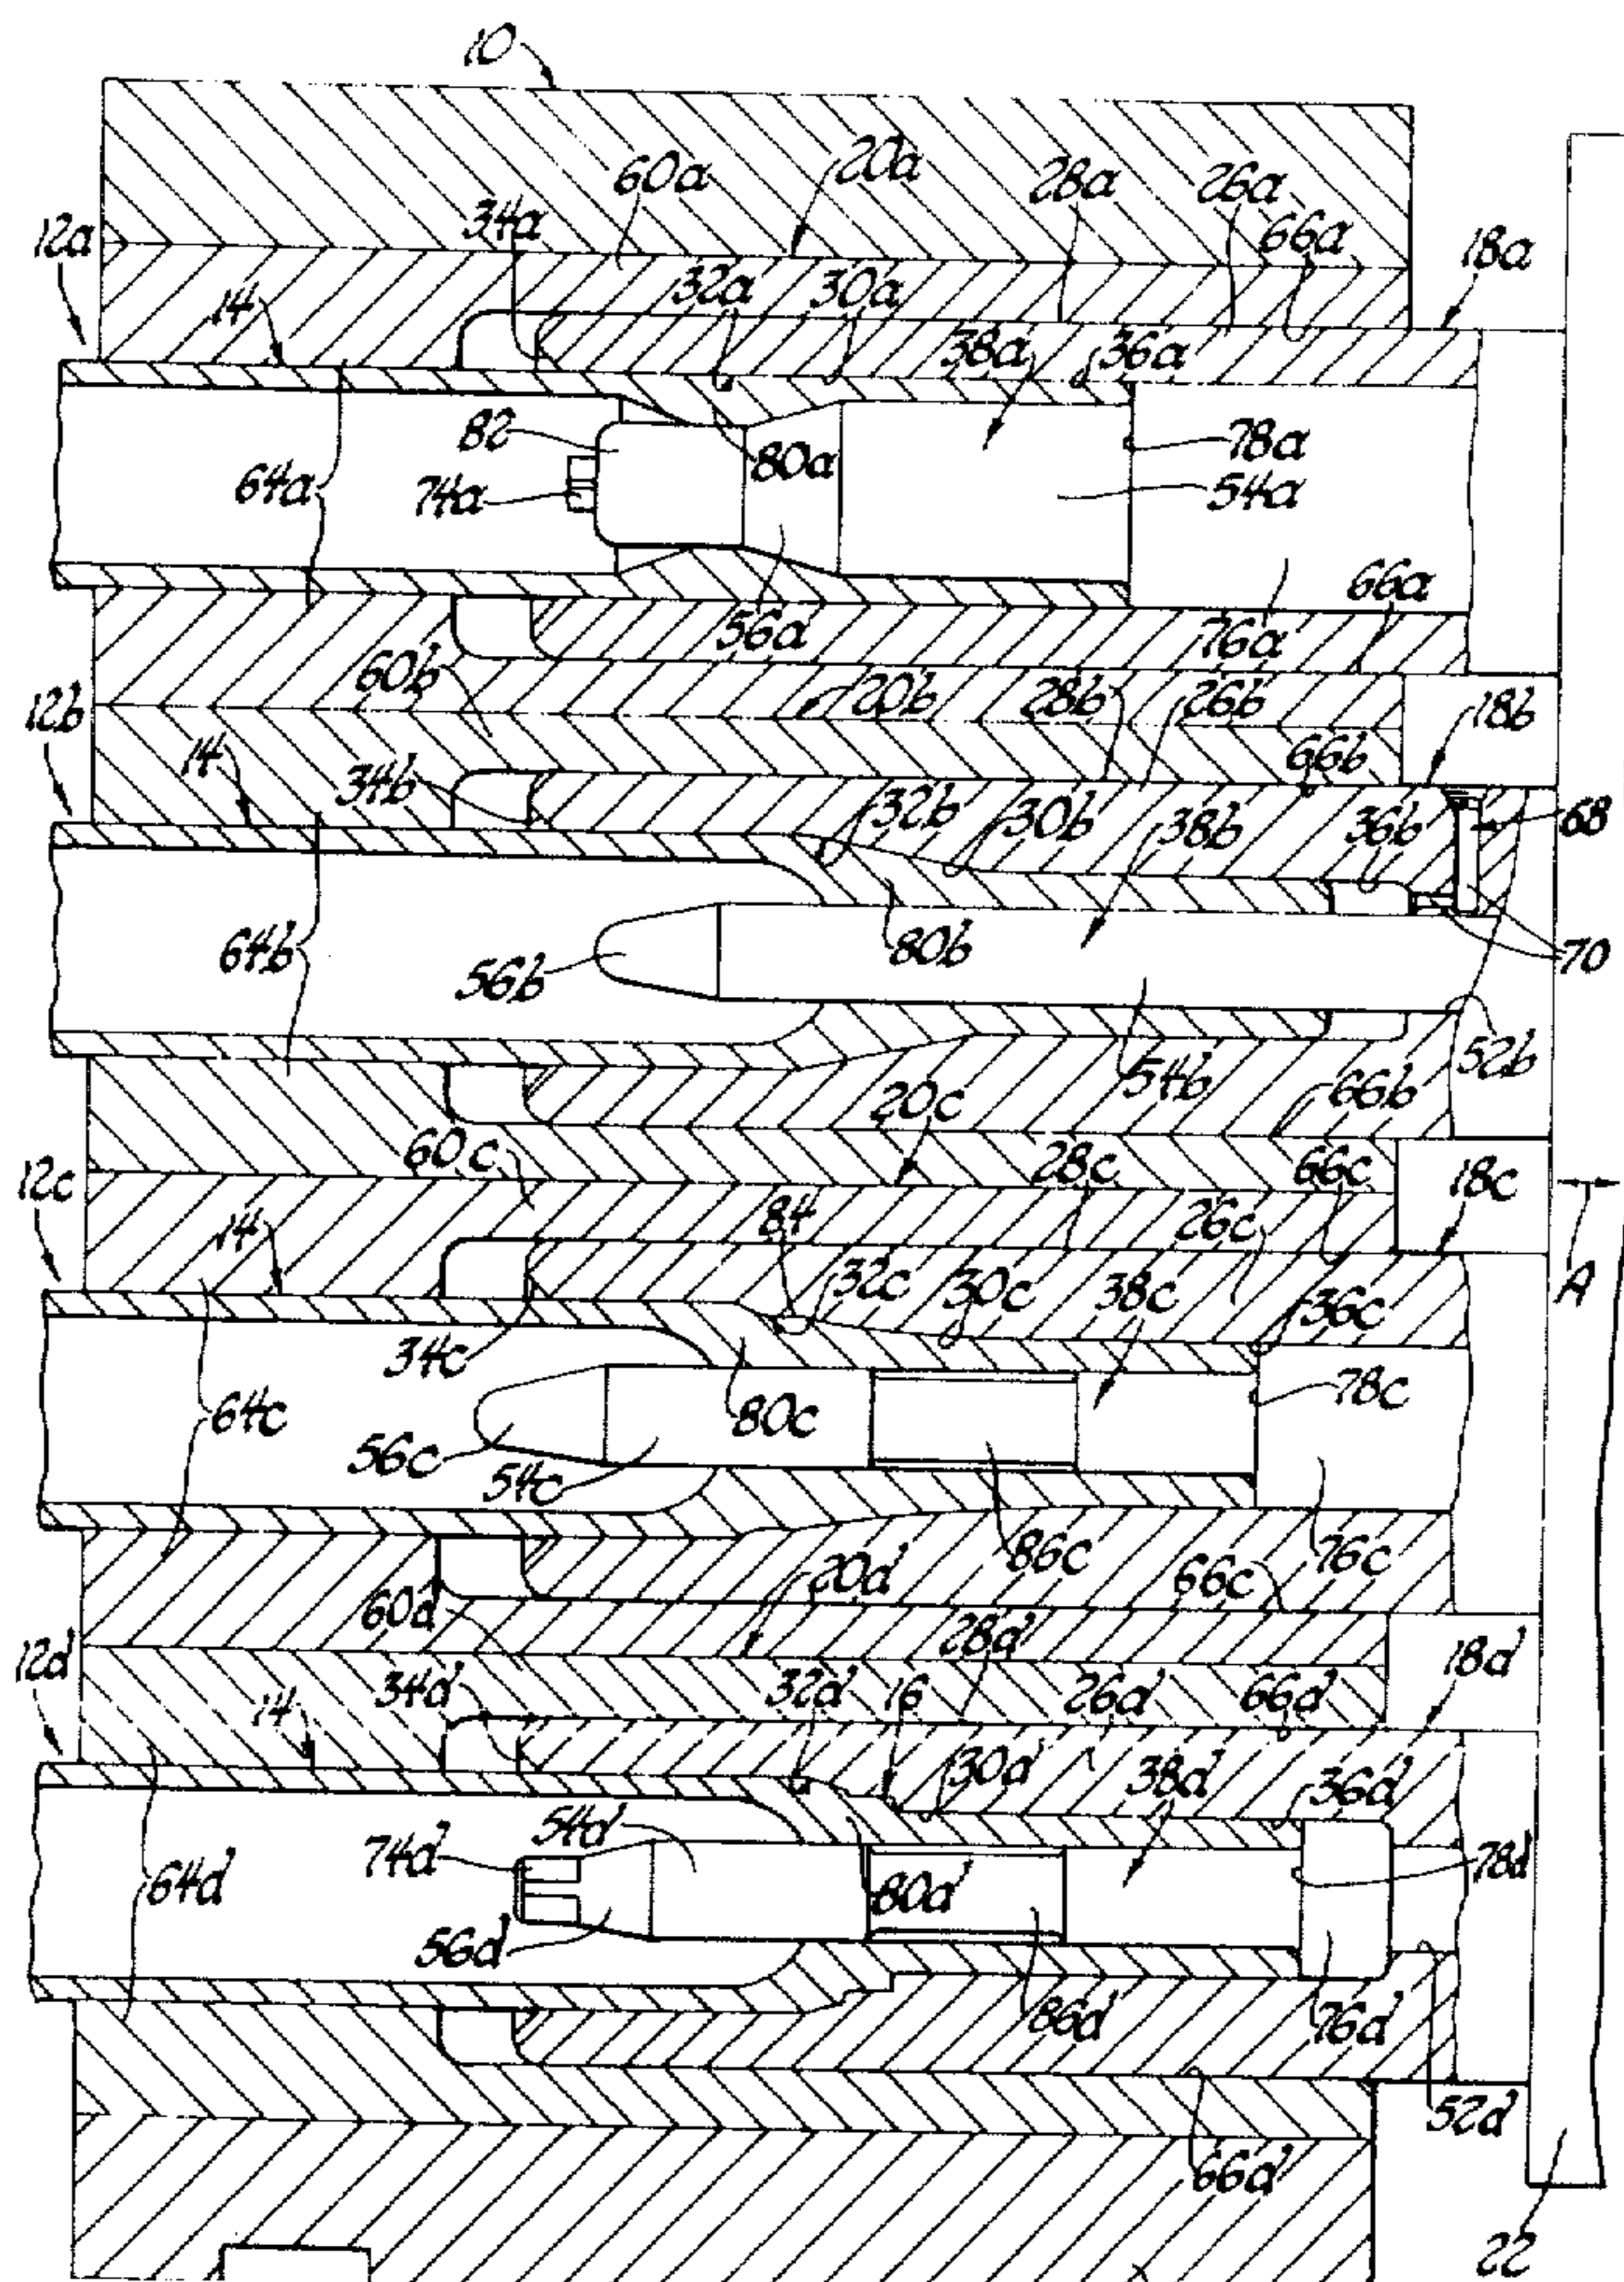 10
60a
20a
28a
26a
34a
66a
12a
18a
14
32a
30a
38a
36a
82
80a
78a
64a
74a
54a
56a
66a
76a
60b
20b
28b
26b
12b
18b
14
66b
34b
32b
30b
38b
36b
68
64b
56b
80b
70
54b
52b
20c
66b
60c
28c
66c
12c
18c
84
26c
14
32c
30c
38c
36c
A
34c
78c
64c
80c
56c
54c
86c
76c
20d
66c
60d
28d
12d
18d
34d
32d
16
26d
66d
14
30d
38d
36d
54d
74d
78d
64d
80d
56d
86d
76d
52d
66d
22